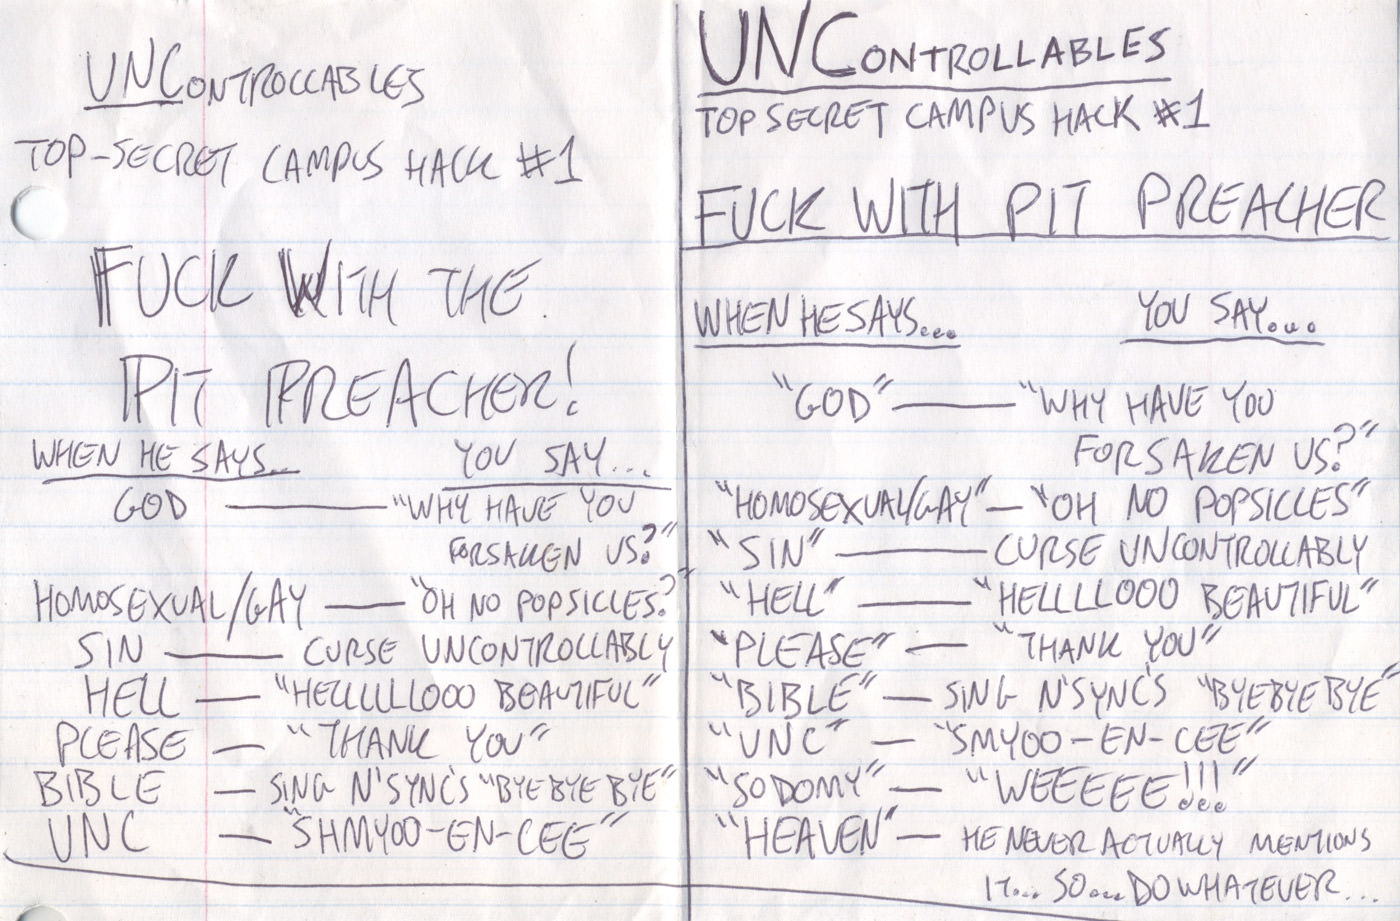 UNCONTROLLABLES
TOP-SECRET CAMPUS HACK #1
FUCK WITH THE
PIT PREACHER!
WHEN HE SAYS... YOU SAY...
GOD — "WHY HAVE YOU
FORSAKEN US?"
HOMOSEXUAL/GAY — "OH NO POPSICLES?"
SIN — CURSE UNCONTROLLABLY
HELL — "HELLLLLLOOO BEAUTIFUL"
PLEASE — "THANK YOU"
BIBLE — SING N'SYNC'S "BYE BYE BYE"
UNC — "SHMYOO-EN-CEE"
UNCONTROLLABLES
TOP SECRET CAMPUS HACK #1
FUCK WITH PIT PREACHER
WHEN HE SAYS... YOU SAY....
"GOD" — "WHY HAVE YOU
FORSAKEN US?"
"HOMOSEXUAL/GAY" — "OH NO POPSICLES"
"SIN" — CURSE UNCONTROLLABLY
"HELL" — "HELLLLLOOO BEAUTIFUL"
"PLEASE" — "THANK YOU"
"BIBLE" — SING N'SYNC'S "BYE BYE BYE"
"UNC" — "SMYOO-EN-CEE"
"SODOMY" — "WEEEEEE!!!"
"HEAVEN" — HE NEVER ACTUALLY MENTIONS
IT... SO... DO WHATEVER...